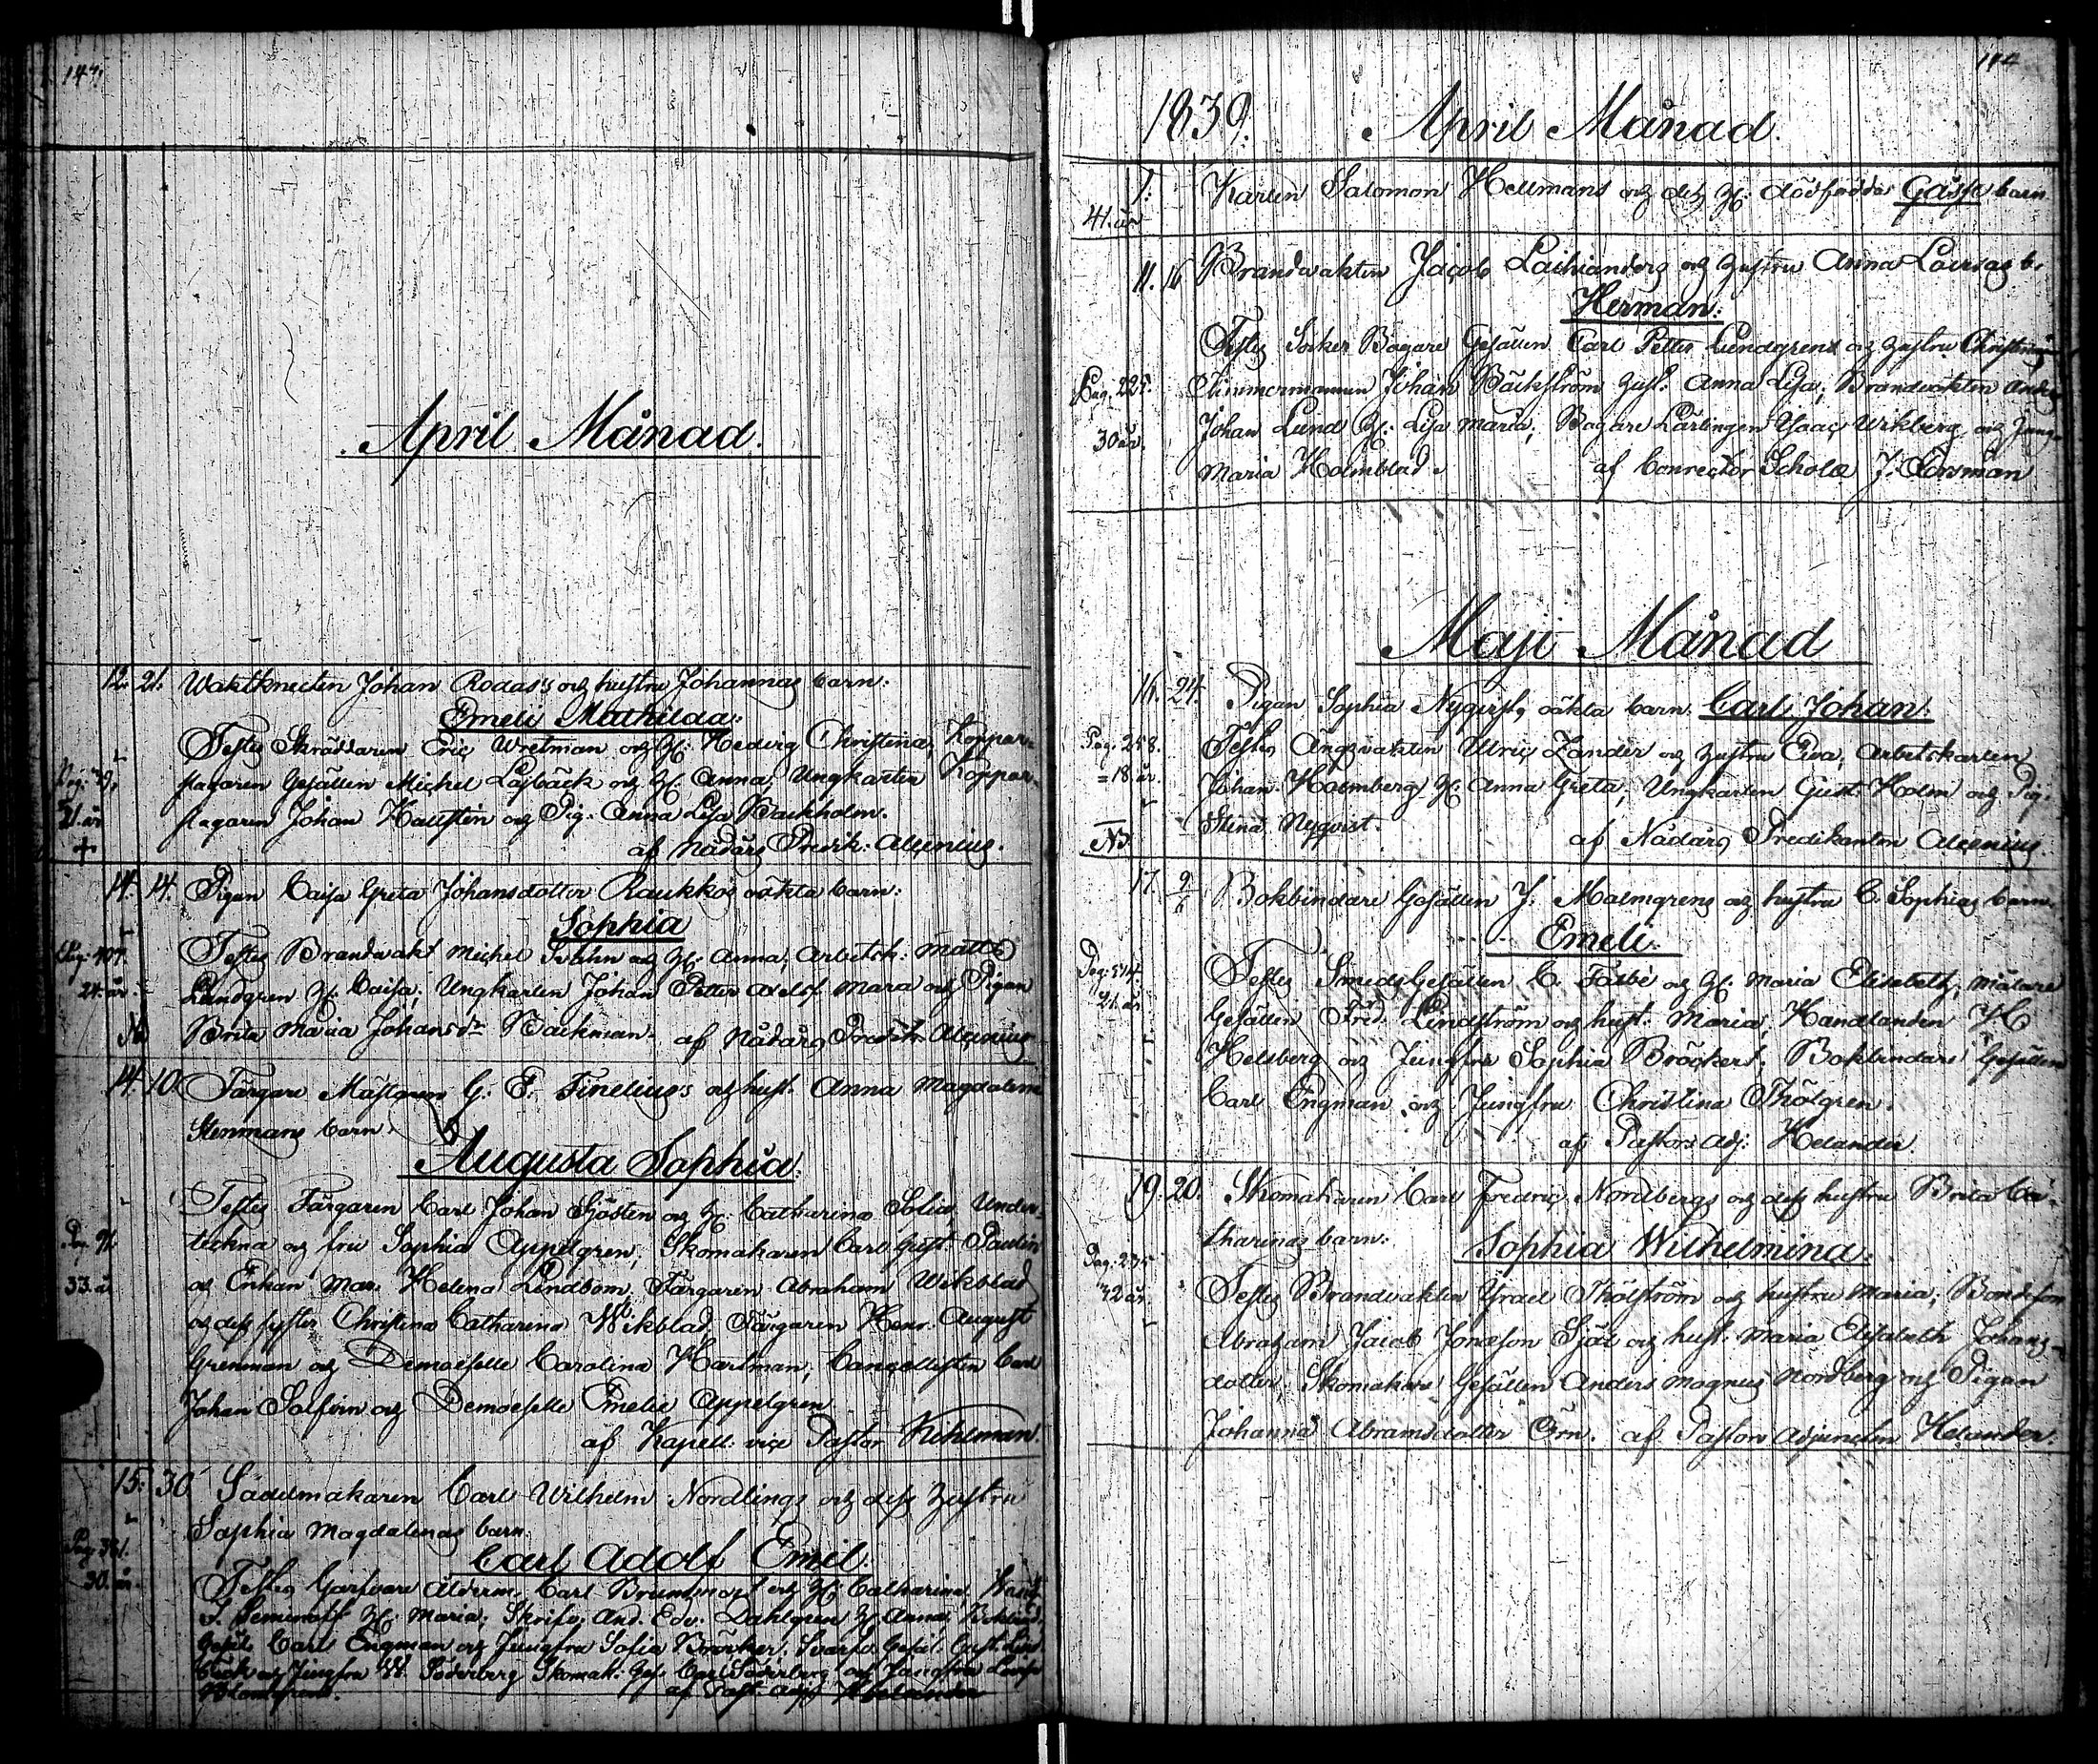 April Månad.
12. 21. Waktknecten Johan Rodas's och hustru Johannas barn:
Emeli Mathilda:
Testes Skräddaren Eric Wretman och H: Hedvig Christina, Koppar-
slagaren Gesällen Michel Låsbäck och H: Anna, Ungkarlen Koppar-
Pag: 39,
slagaren Johan Hallsten och Pig: Anna Lisa Backholm.
21. år
af Nådårs Predik: Alcenius.
14. 14. Pigan Caisa Greta Johansdotter Raukkos oäkta barn:
Sophia
Testes Brandvakt Michel Svahn och H: Anna, Arbetsk: Matts
Pag: 407.
24. år.
Lundgren H: Caisa; Ungkarlen Johan Petter Adolf Mara och Pigan
Brita Maria Johansdr Backman. af Nådårs Predik Alcenius
14. 10. Färgare Mästaren G. E. Finelius's och hust. Anna Magdalena
Stenmans barn.
Augusta Sophia.
Testes Färgaren Carl Johan Sjösten och H: Catharina Sofia, Under-
tecknad och fru Sophia Appelgren, Skomakaren Carl Gust. Paulin
Pag. 91
33. år
och Enkan Mar. Helena Lindbom, Färgaren Abraham Wikblad
och dess syster Christina Catharina Wikblad, Färgaren Henr. August
Grenman och Demoeselle Carolina Hartman, Cancellisten Carl
Johan Solfvin och Demoeselle Emelie Appelgren
af Kapell: vice Pastor Kihlman.
15. 30 Sadelmakaren Carl Wilhelm Nordlings och dess hustru
Sophia Magdalenas barn.
Carl Adolf Emil.
30. år.
Testes Garfvare Ålderm. Carl och H: Catharina,
H: Maria; Skrifv. And. Edv. Dahlgren H: Anna, Bokbind.
Gesäll Carl Engman och Jungfru Sofia Bröcker, Svarfv. Gesäl. Gust. Lind-
bäck och Jungfru W. Söderberg Skomak. Ges. Carl Söderberg och Jungfru Lovisa
Blomgrens. af Past. Adj. Helander
1839. April Månad.
1: Karlen Salomon Hellmans och dess H: dödfödda Gåsse barn.
41. år
11. 16 Brandvakten Jacob och hustru Anna b.
Herman:
Testes Socker Bagare Gesällen Carl Petter Lundgrens och hustru Christina
Pag. 225. Timmermannen Johan Bäckström hust. Anna Lisa, Brandvakten
Johan Lund H: Lisa Maria; Bagare Lärlingen Isaac Wikberg och Jung.
30 år.
Maria Holmblad. af Conrector Scholæ J. Forsman
Maji Månad
16. 24. Pigan Sophia Nyqvists oäkta barn. Carl Johan.
Pag. 258. Testes Ångvakten Ulric Zander och hustru Eva, Arbetskarlen
18 år. Johan Holmberg H: Anna Greta, Ungkarlen Gust. Holm och Pig.
Stina Nyqvist. af Nådårs Predikanten Alcenius
NB.
17. 9/6 Bokbindare Gesällen J. Malmgrens och hustru C. Sophias barn.
Emeli.
Pag: 514. Testes Smeds Gesällen C. och H: Maria Elisabeth, Målare
Gesällen Fred. Lindström och hust. Maria, Handlanden
Helsberg och Jungfru Sophia Bröckert, Bokbindare Gesällen
Carl Engman och Jungfru Christina Thölgren.
af Pastors Adj: Helander.
19. 20. Skomakaren Carl Fredric Nordbergs och dess hustru Brita Ca-
tharinas barn. Sophia Wilhelmina.
Pag. 235
32 år.
Testes Brandvakten Israel Thölström och hustru Maria, Bondeson
Abraham Jacob Jonæson Sjöl och hust. Maria Elisabeth Johans-
dotter, Skomakare Gesällen Anders Magnus Nordberg och Pigan
Johanna Abramsdotter Örn. af Pastors Adjuncten Helander.